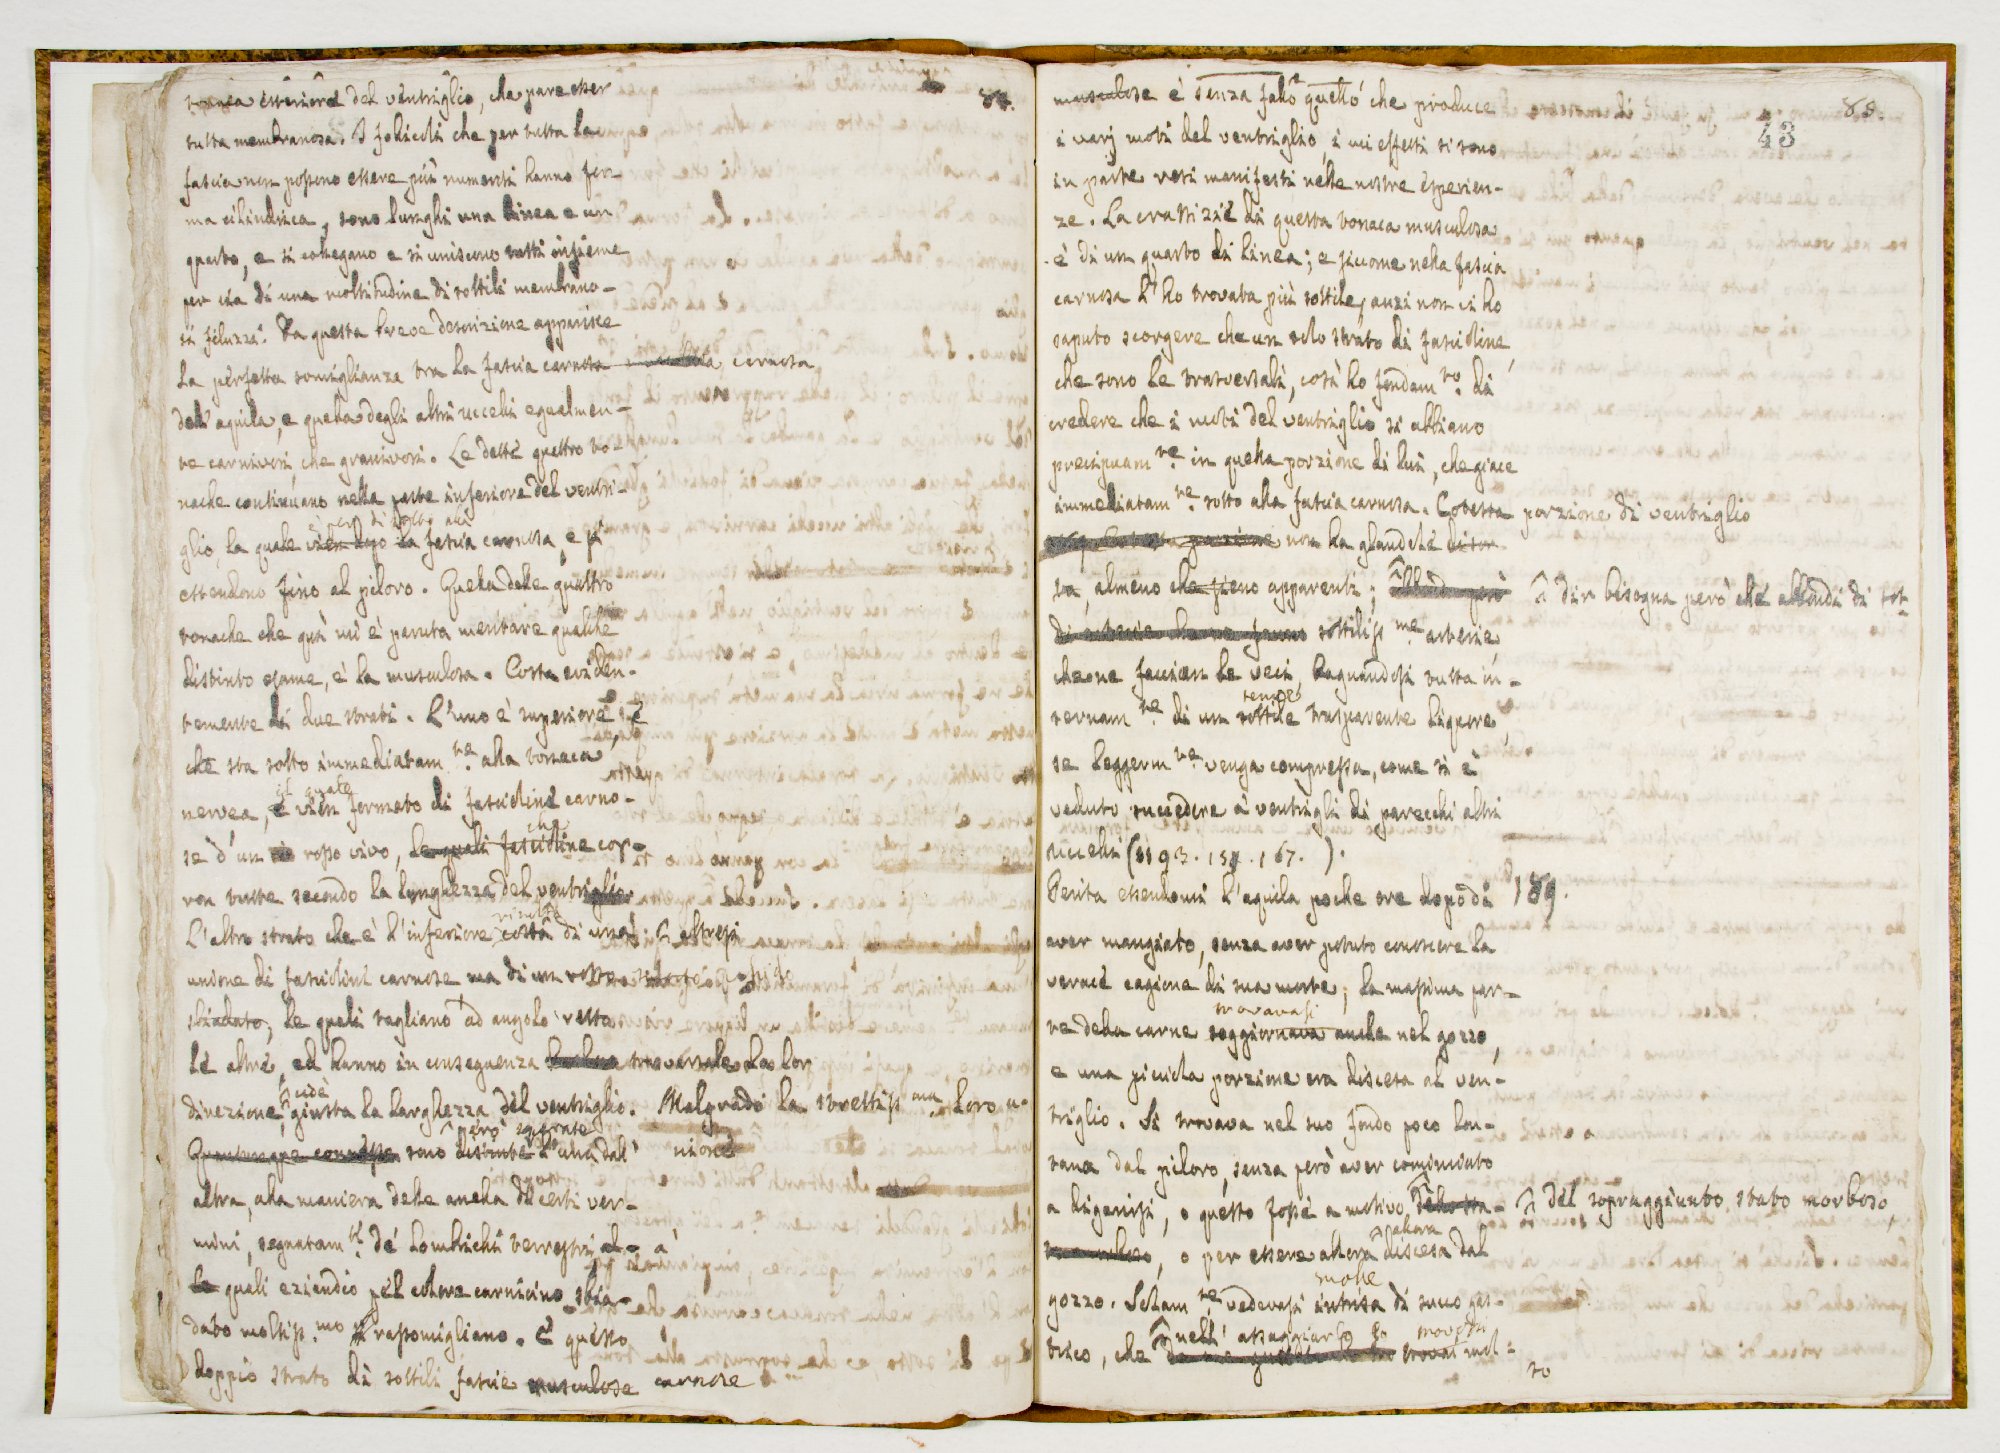 tonaca esteriore del ventriglio, che par esser
tutta membranosa. I folicoli che per tutta la
fascia non possono essere più numerosi hanno for-
ma cilindrica, sono lunghi una linea e un
quarto, e si collegano e si uniscono tutti insieme
per via di una moltitudine di sottili membrano-
si filuzzi. Da questa breve descrizione apparisce
la perfetta somiglianza tra la fascia carnosa carnosa
dell'aquila, e quella degli altri uccelli egualmen-
te carnivori, che granivori. Le dette quattro to-
nache continuano nella parte inferiore del ventri-
glio, la quale vien dopo la fascia carnosa, e si
è per di sotto alla
estendono fino al piloro. Quella delle quattro
tonache che quì mi è paruta meritare qualche
distinto esame, è la musculosa. Costa eviden-
temente di due strati. L'uno è superiore, e
che sta sotto immediatam.te alla tonaca
nervea, e vien formato di fascioline carno-
il quale
se d'un rosso vivo, le quali fascioline cor-
che
ron tutte secondo la lunghezza del ventriglio.
L'altro strato che è l'inferiore costa di una
risulta
altresì
unione di fascioline carnose ma di un rosso
sbiadato, le quali tagliano ad angolo retto
le altre, ed hanno in conseguenza trasversale la lor
direzione, giusta la larghezza del ventriglio. Malgrado la strettiss.ma loro u-
cioè
nione
Quantunque connesse sono distinte l'una dall'
però separate
altra, alla maniera delle anella di certi ver-
mini, segnatam.te de' lombrichi terrestri, al-
a'
le quali eziandio pel colore carnicino sbia-
dato moltiss.mo si rassomigliano. E questo
doppio strato di sottili fascie musculose carnose
88.
43
musculose è senza fallo quello che produce
i varj moti del ventriglio, i cui effetti si sono
in parte resi manifesti nelle nostre esperien-
ze. La crassizie di questa tonaca musculosa
è di un quarto di linea; e siccome nella fascia
carnosa l'ho trovata più sottile, anzi non ci ho
saputo scorgere che un solo strato di fascioline,
che sono le trasversali, così ho fondam.to di
credere che i moti del ventriglio si abbiano
precipuam.te in quella porzione di lui, che giace
immediatam.te sotto alla fascia carnosa. Cotesta porzione di ventriglio
non ha glandole
sa, almeno che sieno apparenti; abbonda però
dir bisogna però che abbondi di sot-
di arterie sottiliss.me arterie
che ne faccian le veci, bagnandosi tutta in-
ternam.te di un sottile trasparente liquore,
tenue
se leggerm.te venga compressa, come si è
veduto succedere a' ventrigli di parecchi altri
uccelli (§§ 93. 157. 167. ).
189.
Perita essendomi l'aquila poche ore dopo di
aver mangiato, senza aver potuto conoscere la
verace cagione di sua morte; la massima par-
te della carne soggiornava anche nel gozzo,
trovavasi
e una picciola porzione era discesa al ven-
triglio. Si trovava nel suo fondo poco lon-
tana dal piloro, senza però aver cominciato
a digerirsi, o questo fosse a motivo dello sta-
del sopraggiunto stato morboso,
to morboso, o per essere allora discesa dal
allora
gozzo. Solam.te vedevasi intrisa di succo gas-
molle
trico, che trovai mol-
nell' assaggiarlo
trovossi
to